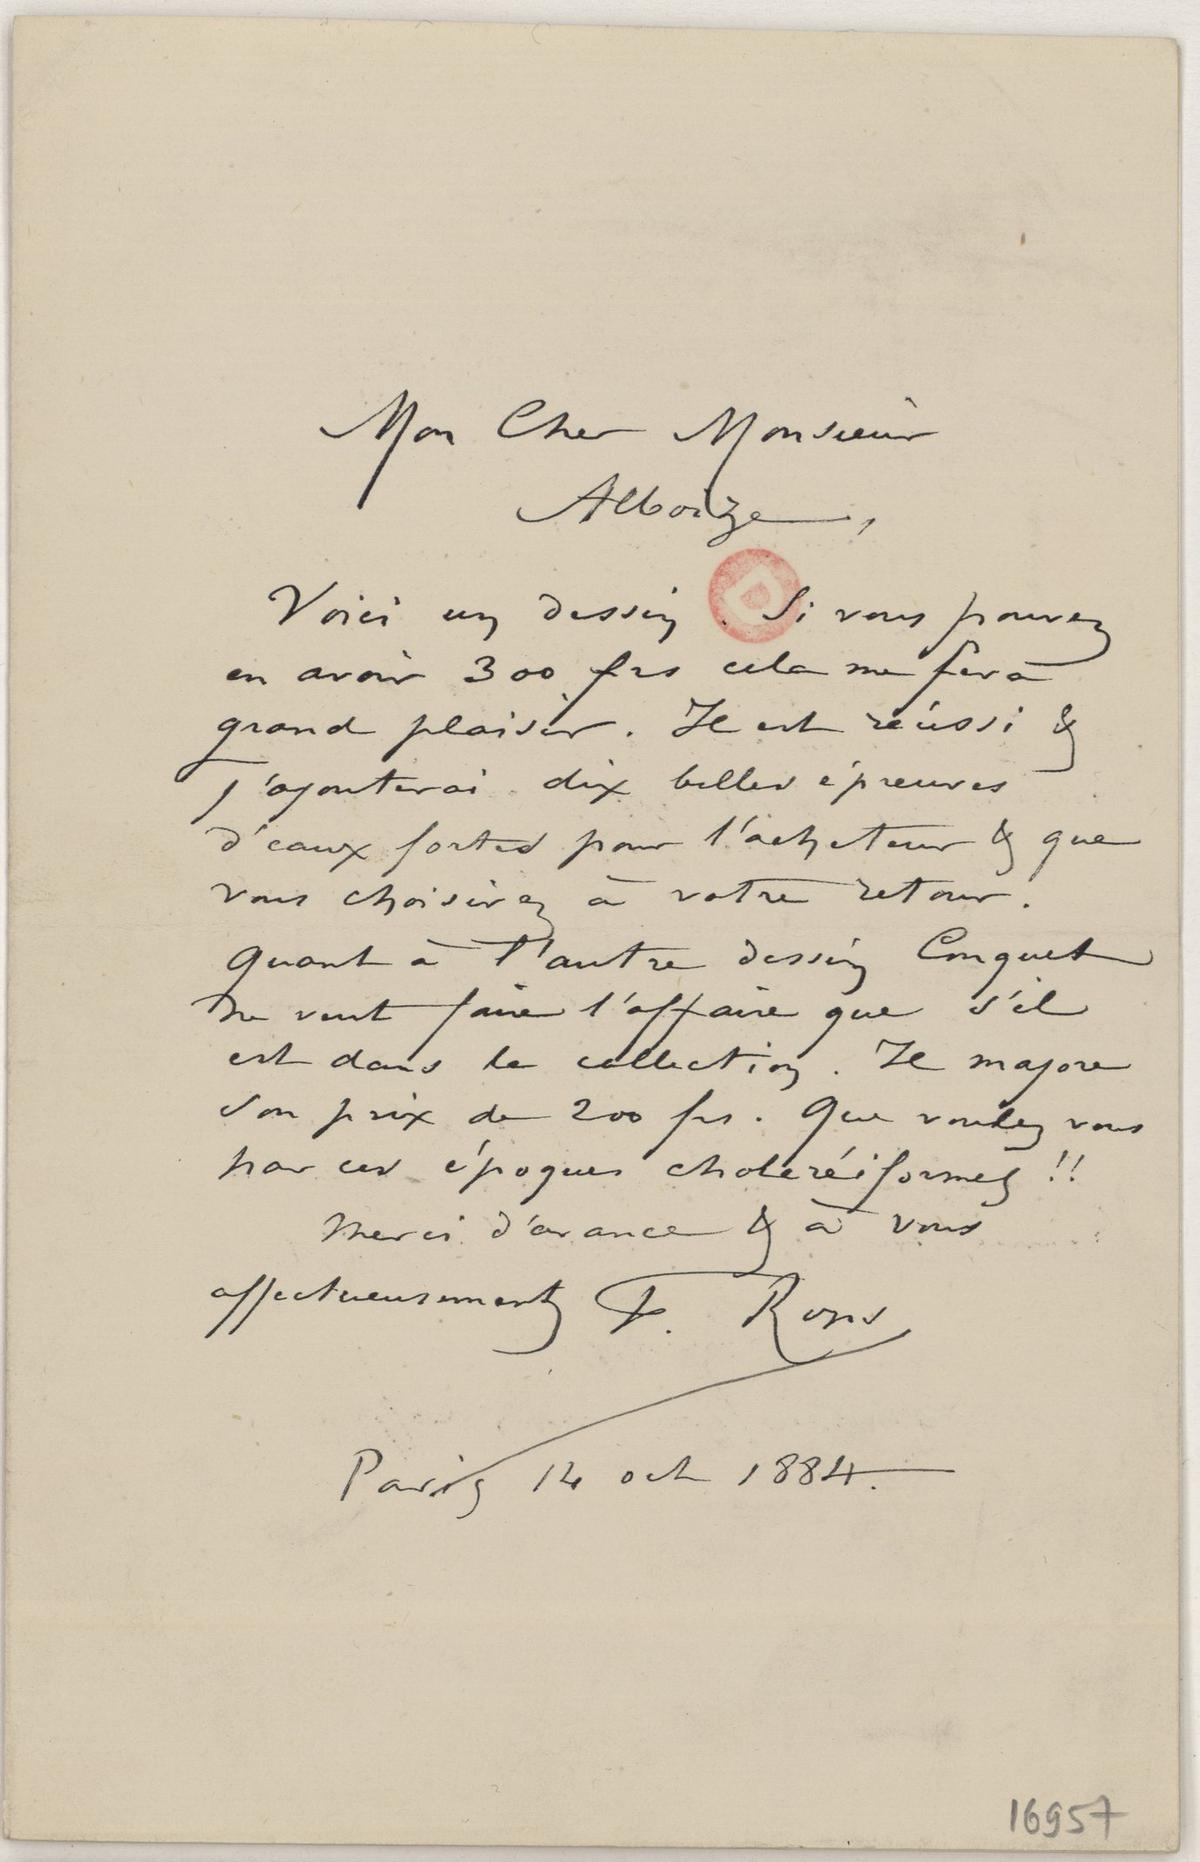 Mon Cher Monsieur
Alboize,
Voici un dessin. Si vous pouvez
en avoir 300 frs cela me fera
grand plaisir. Il est réussi &
j'ajouterai dix belles épreuves
d'eaux fortes pour l'acheteur & que
vous choisirez à votre retour.
Quant à l'autre dessin Conquet
ne veut faire l'affaire que s'il
est dans la collection. Il majore
son prix de 200 frs. Que voulez vous
par ces époques choleréiformes!!
Merci d'avance & à vous
affectueusement F. Rops
Paris 14 oct 1884.
16957